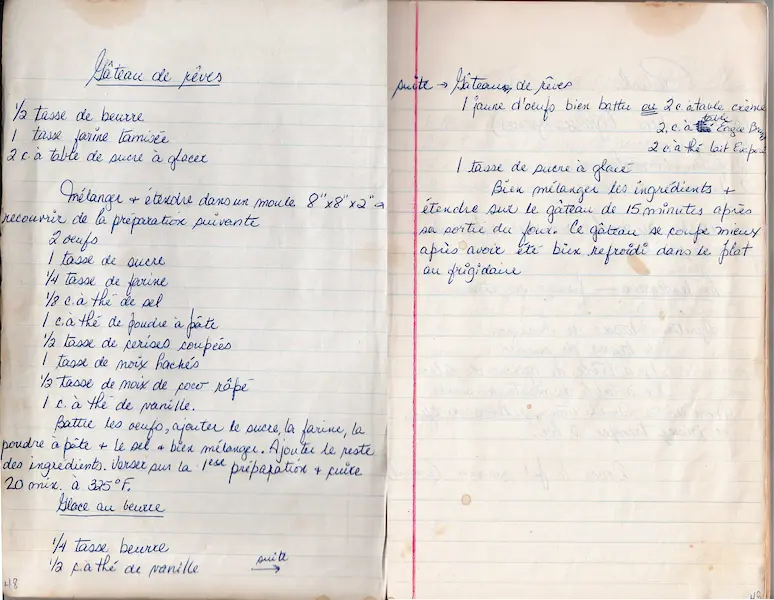 Gâteau de rêves
1/2 tasse de beurre
1 tasse farine tamisée
2 c. à table de sucre à glacer
Mélanger + étendre dans un moule 8"x8"x2" →
recouvrir de la préparation suivante
2 oeufs
1 tasse de sucre
1/4 tasse de farine
1/8 c. à thé de sel
1 c. à thé de poudre à pâte
1/2 tasse de cerises coupées
1 tasse de noix hachés
1/2 tasse de noix de coco râpé
1 c. à thé de vanille.
Battre les oeufs, ajouter le sucre, la farine, la
poudre à pâte + le sel + bien mélanger. Ajouter le reste
des ingrédients. Verser sur la 1ère préparation + cuire
20 min. à 325°F.
Glace au beurre
1/4 tasse beurre
1/2 c. à thé de vanille suite →
48
suite → Gâteau de rêves
1 jaune d'oeufs bien battu ou 2 c. à table crème
2 c. à table Eagle
2 c. à thé lait
1 tasse de sucre à glacé
Bien mélanger les ingrédients +
étendre sur le gâteau de 15 minutes après
sa sortie du four. Ce gâteau se coupe mieux
après avoir été bien refroidi dans le plat
au frigidaire
48